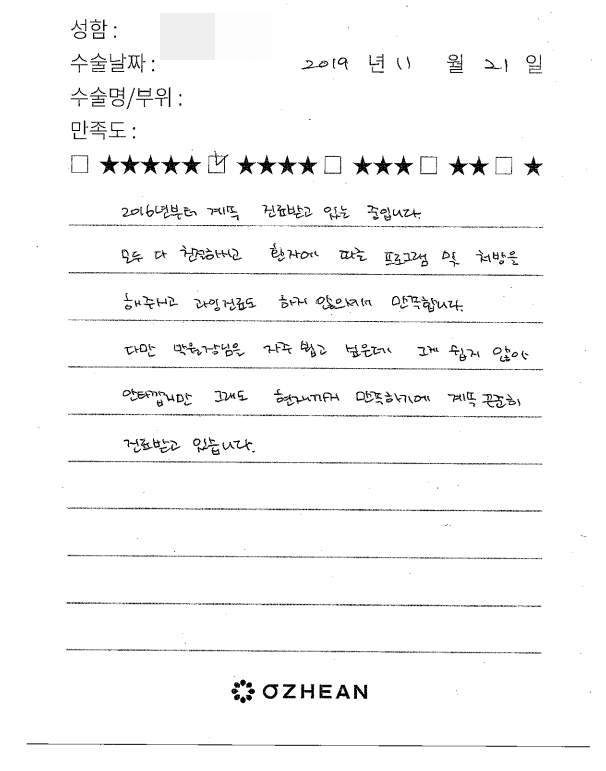 성함 :
수술날짜 : 2019 년 11 월 21 일
수술명/부위 :
만족도 :
□ ★★★★★ ☑ ★★★★ □ ★★★ □ ★★ □ ★
2016년부터 계속 진료받고 있는 중입니다.
모두 다 친절하시고 환자에 따른 프로그램 및 처방을
해주시고 과잉진료도 하지 않으셔서 만족합니다.
다만 박원장님을 자주 뵙고 싶은데 그게 쉽지 않아
안타깝지만 그래도 현재까지 만족하기에 계속 꾸준히
진료받고 있습니다.
OZHEAN